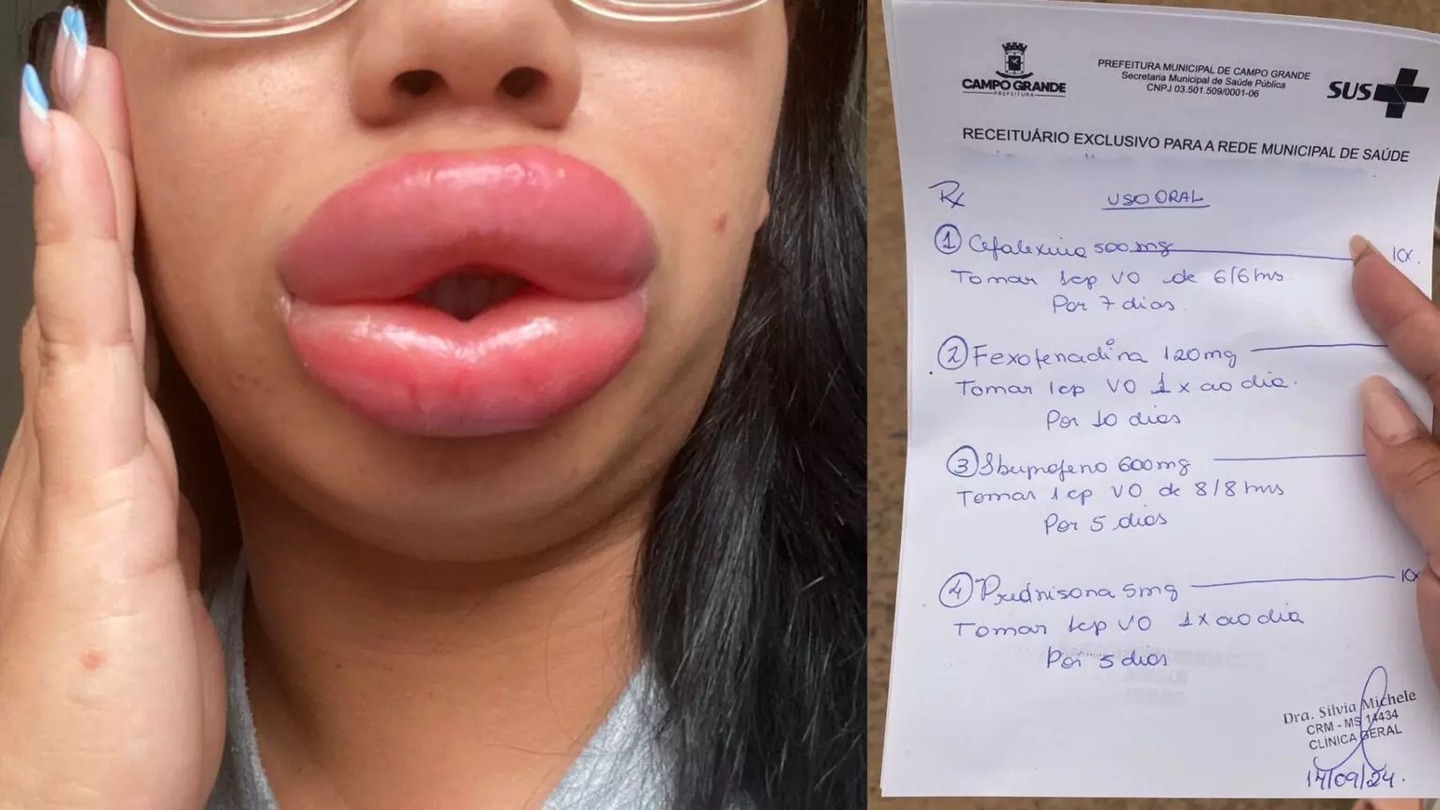 CAMPO GRANDE
PREFEITURA
PREFEITURA MUNICIPAL DE CAMPO GRANDE
Secretaria Municipal de Saúde Pública
CNPJ 03.501.509/0001-06
SUS
RECEITUÁRIO EXCLUSIVO PARA A REDE MUNICIPAL DE SAÚDE
Rx USO ORAL
1 Cefalexina 500mg
Tomar 1cp VO de 6/6hs
Por 7 dias
2 Fexofenadina 120mg
Tomar 1cp VO 1x ao dia.
Por 10 dias
3 Ibuprofeno 600mg
Tomar 1cp VO de 8/8hs
Por 5 dias
4 Prednisona 5mg
Tomar 1cp VO 1x ao dia
Por 5 dias
Dra. Silvia Michele
CRM - MS 14434
CLÍNICA GERAL
14/09/24.